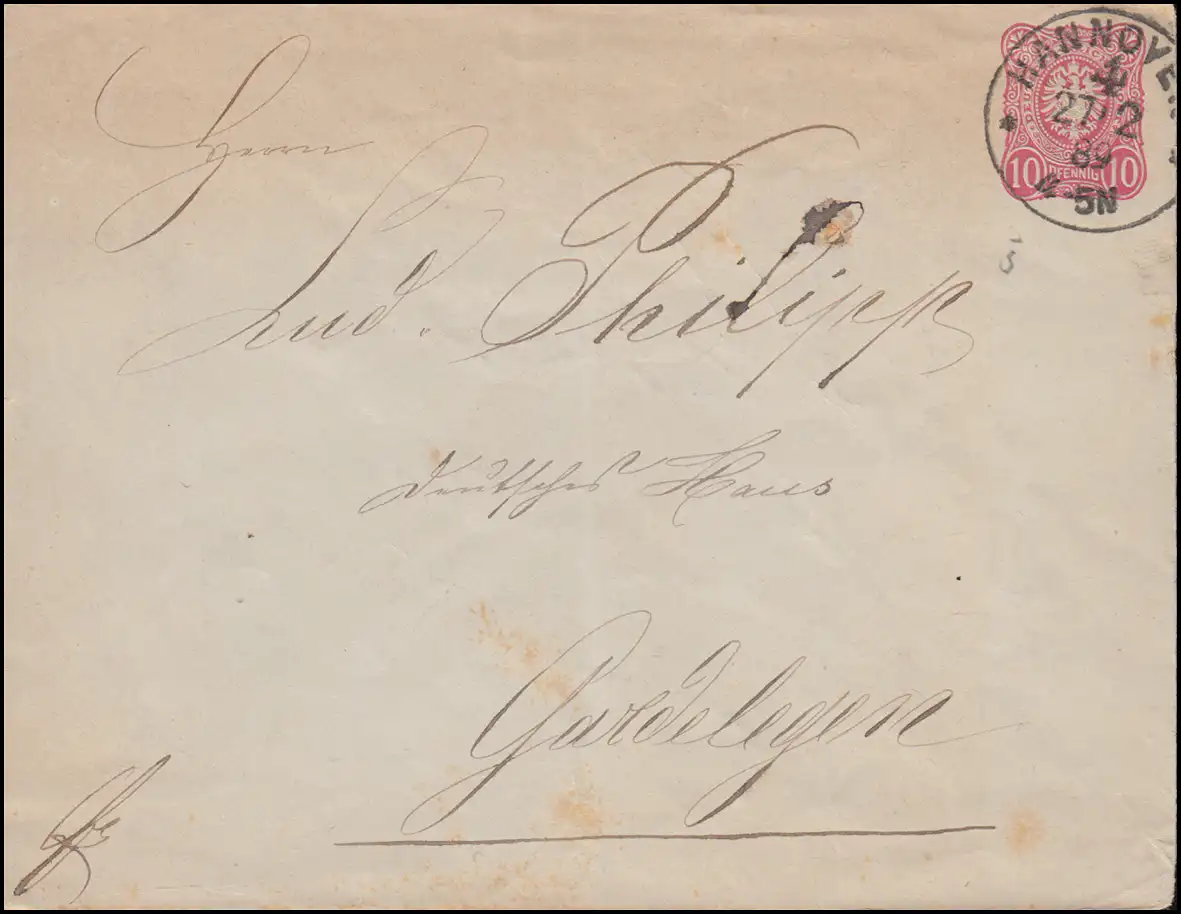 HANNOVER
27 2
89
4-5N
10 PFENNIG 10
Herrn
Lud. Philipp
Deutsches Haus
Gardelegen